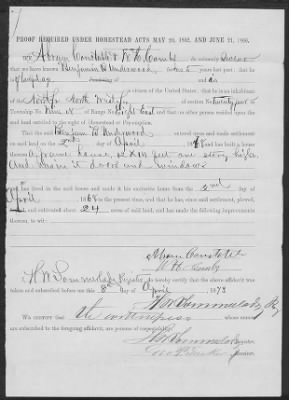 PROOF REQUIRED UNDER HOMESTEAD ACTS MAY 20, 1862, AND JUNE 21, 1866.
We, Abram Constable & W H Comly do solemnly Declare
that we have known Benjamin B Underwood for 5 years last past; that he
is
of the United States; that he is an inhabitant
of the North ½ North West ¼ of section No. Twenty four in
Township No. Nine N of Range Eight East and that no other person resided upon the said
land entitled to the right of Homestead or Pre-emption.
That the said Benjamin B Underwood entered upon and made settlement
on said land on the 2nd day of April, 1868 and has built a house
thereon
A frame house, feet one story high,
And door and windows
and has lived in the said house and made it his exclusive home from the 2nd day of
April, 1868 to the present time, and that he has, since said settlement, plowed,
and cultivated about 24 acres of said land, and has made the following improvements
thereon, to wit:
Abram Constable
W H Comly
I, do hereby certify that the above affidavit was
taken and subscribed before me this 8th day of April, 1873
WE CERTIFY that the witnesses whose names
are subscribed to the foregoing affidavit, are persons of respectability.
Register.
Receiver.